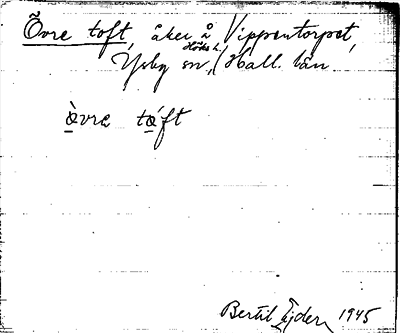 Övre toft, åker å Vippentorpet,
Ysby sn, Höks h. Hall. län.
òvre tóft
Bertil Ejder 1945